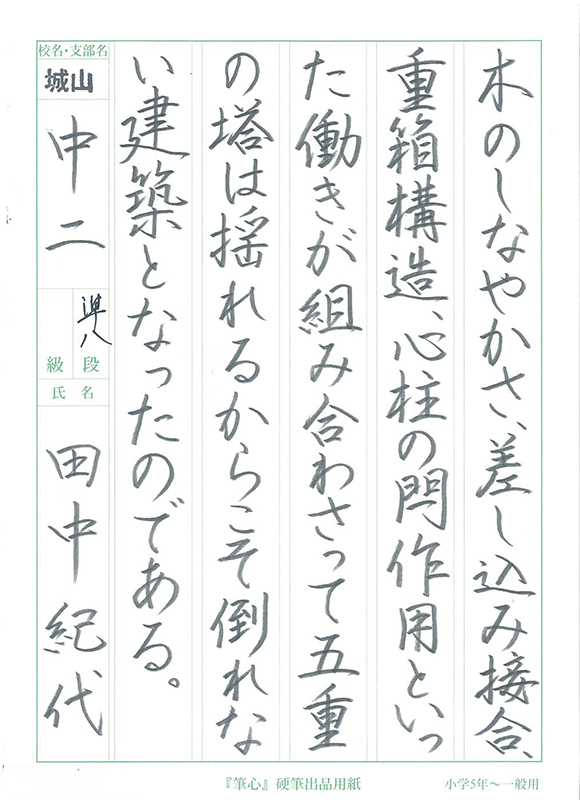 木のしなやかさ、差し込み接合、
重箱構造、心柱の閂作用といっ
た働きが組み合わさって五重
の塔は揺れるからこそ倒れな
い建築となったのである。
校名・支部名
城山
中二
準八
級 段
氏名
田中紀代
『筆心』硬筆出品用紙
小学5年〜一般用